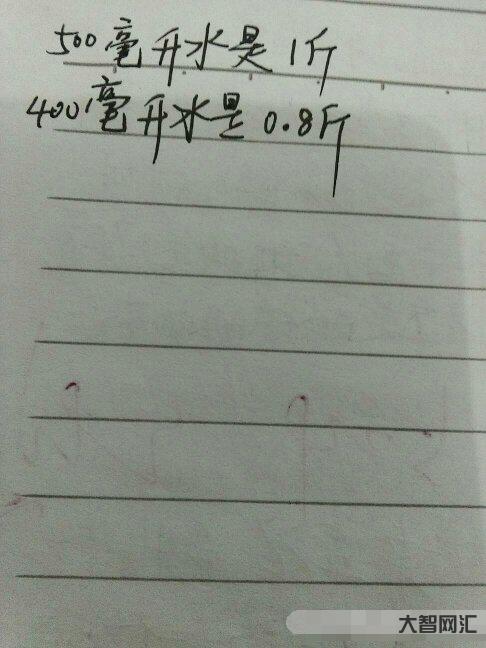 500毫升水是1斤
400毫升水是0.8斤
大智网汇